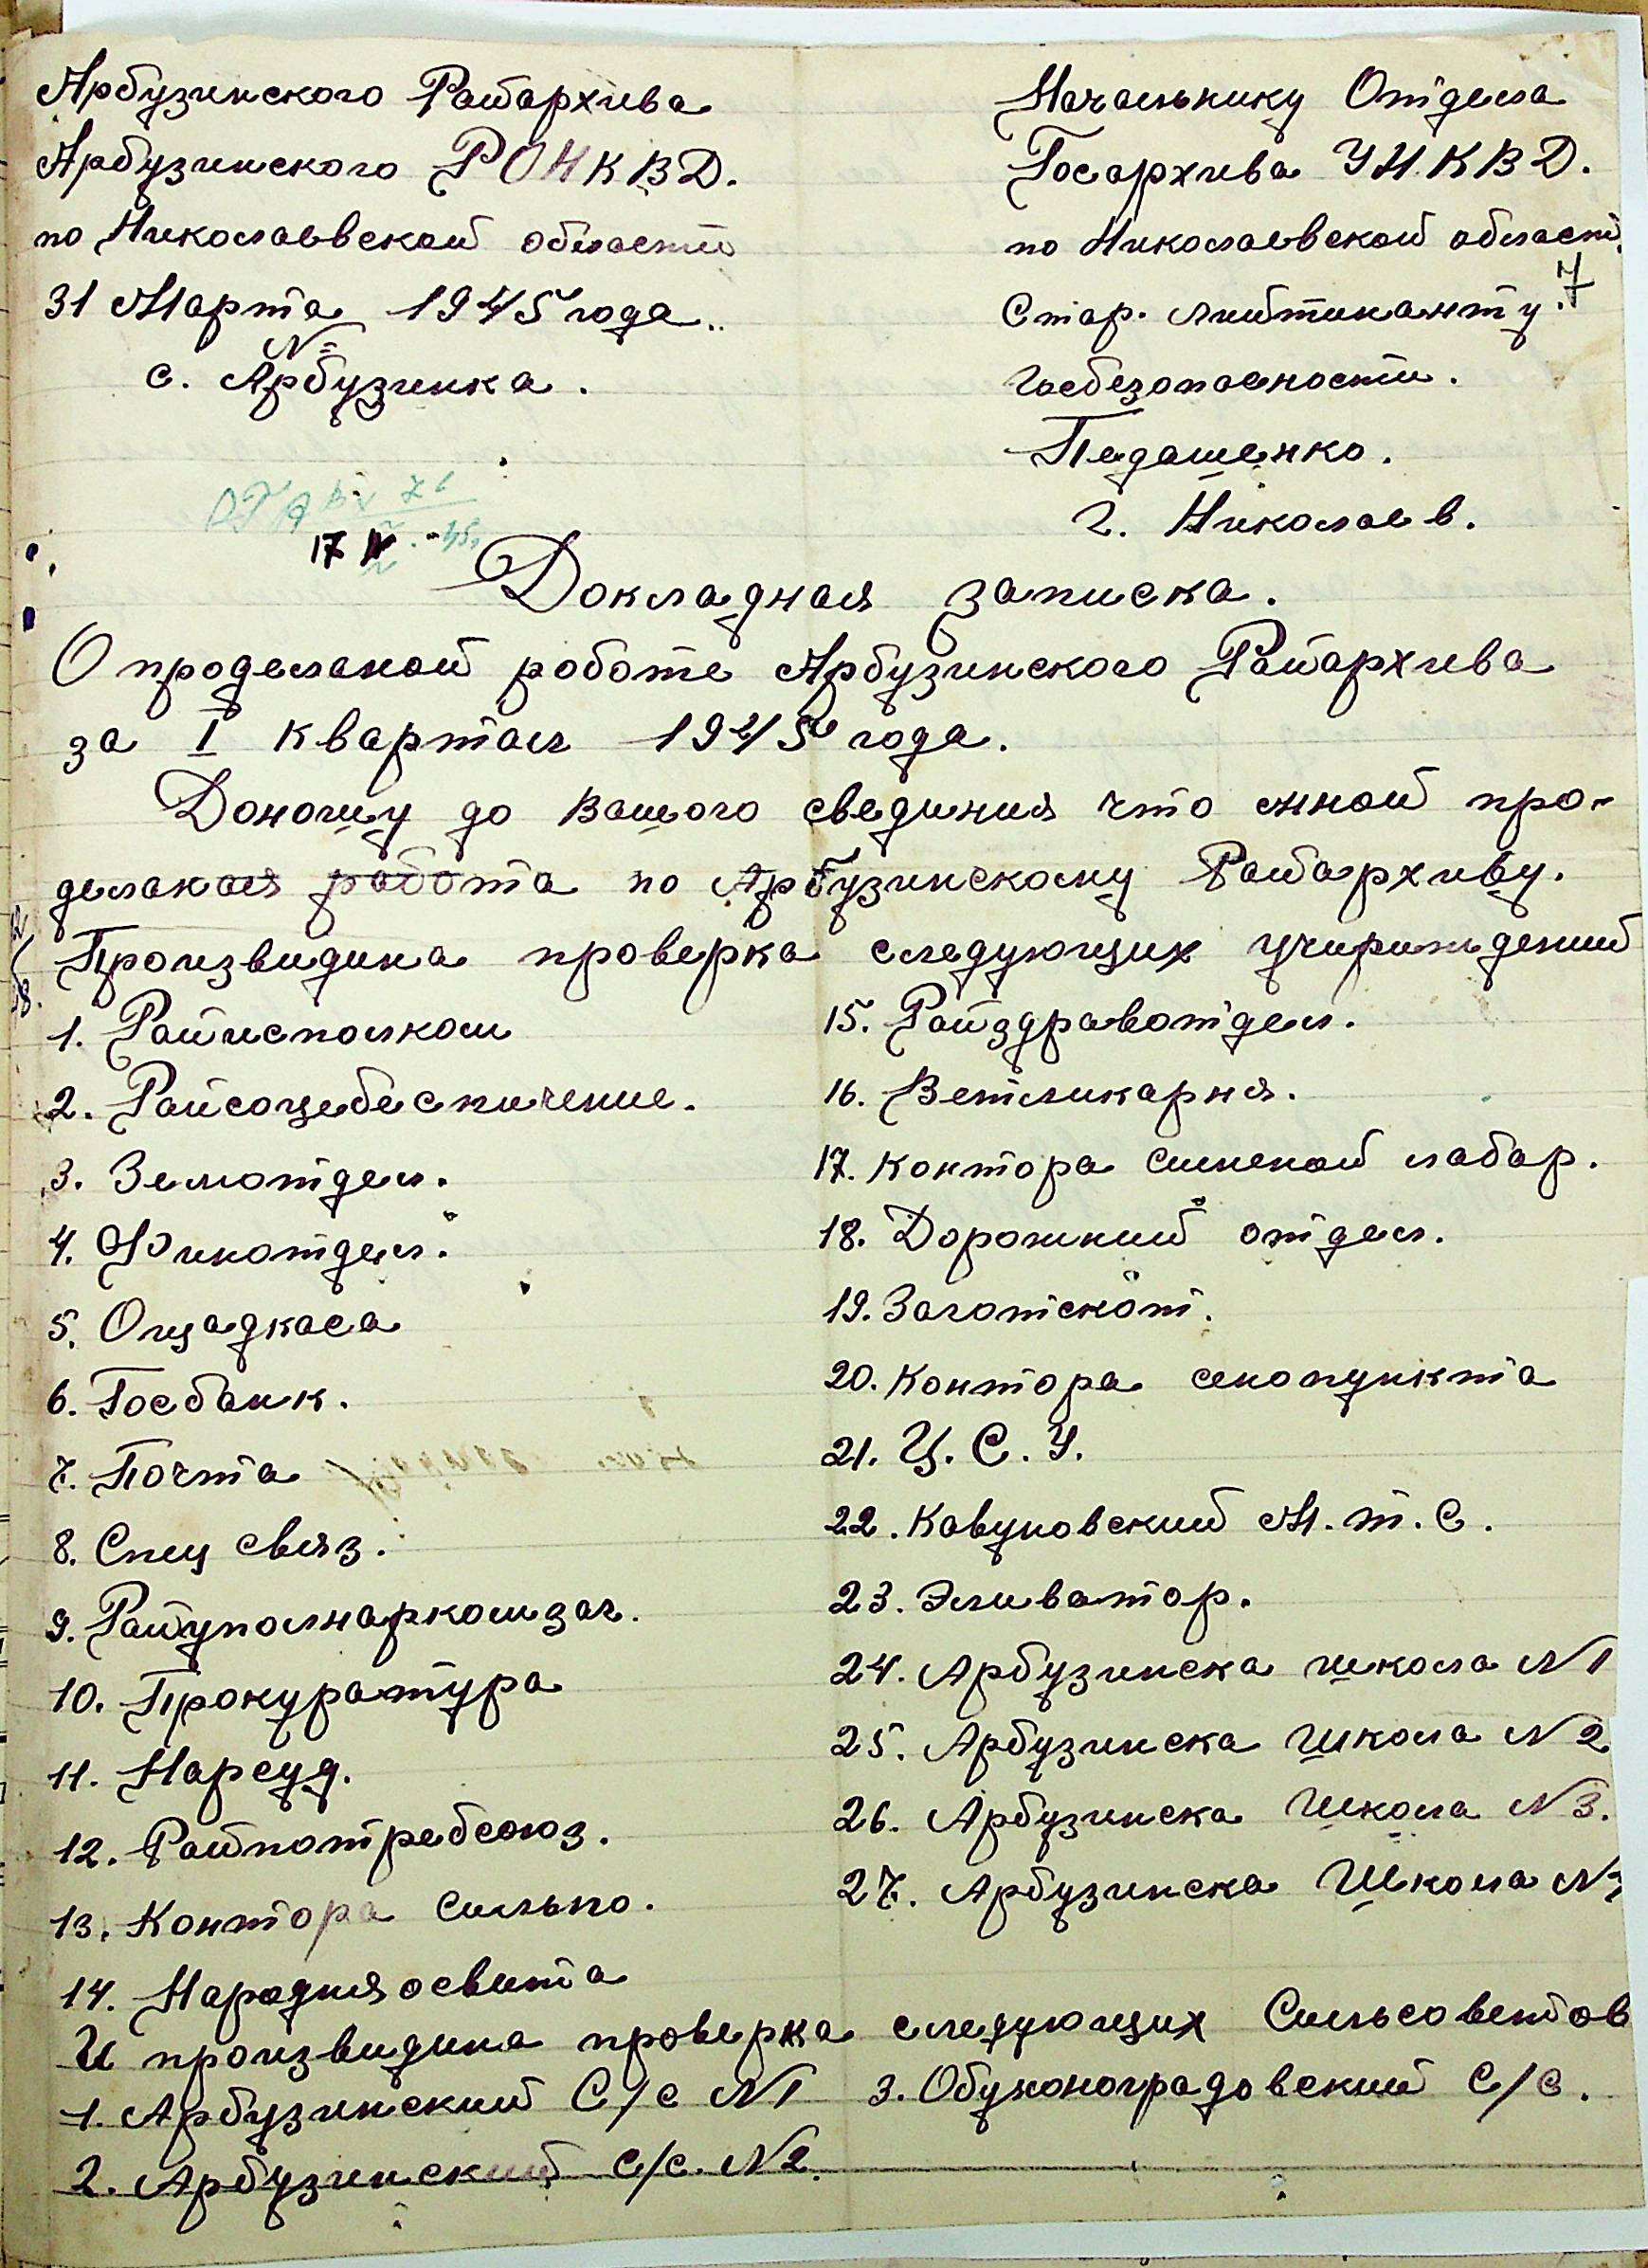 Арбузинского Райархива
Арбузинского РОНКВД.
по Николаевской области
31 Марта 1945 года..
№=
с. Арбузинка.
Начальнику Отдела
Госархива УНКВД.
по Николаевской област
7
Стар. лийтинанту.
Гасбезопасности.
Педашенко.
г. Николаев.
17
45
Докладная записка.
О проделаной роботе Арбузинского Райархива
за I квартал 1945 года.
Доношу до вашого свединия что мной про-
деланая работа по Арбузинскому Райархиву.
Произвидина проверка следующих учириждений
1. Райисполком
2. Райсоцебеспичение.
3. Земотдел.
4. Финотдел.
5. Ощадкаса
6. Госбанк.
7. Почта
8. Спец связ.
9. Райуполнаркомзаг.
10. Прокуратура
11. Нарсуд.
12. Райпотребсоюз.
13. Контора Сильпо.
14. Народняосвита
15. Райздравотдел.
16. Ветликарня.
17. Контора сименой лабар.
18. Дорожний отдел.
19. Заготскот.
20. Контора сенопункта
21. Ц.С.У.
22. Кавуновский М.т.С.
23. Эливатор.
24. Арбузинска школа №1
25. Арбузинска школа №2
26. Арбузинска Школа №3.
27. Арбузинска Школа №
И произвидина проверка следующих Сильсоветов
1. Арбузинский С/с №1 3. Обужоноградовский С/с.
2. Арбузинский с/с. №2.